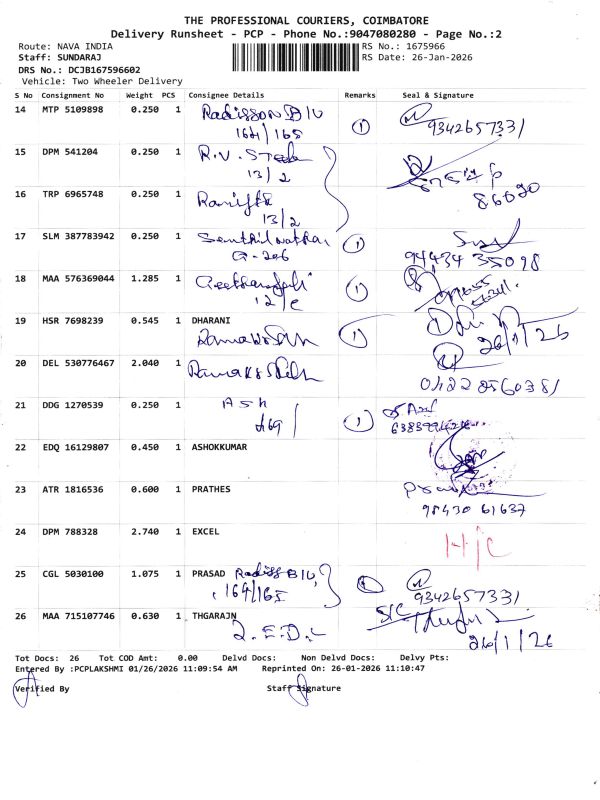 THE PROFESSIONAL COURIERS, COIMBATORE
Delivery Runsheet - PCP - Phone No.:9047080280 - Page No.:2
Route: NAVA INDIA RS No.: 1675966
Staff: SUNDARAJ RS Date: 26-Jan-2026
DRS No.: DCJB167596602
Vehicle: Two Wheeler Delivery
S No Consignment No Weight PCS Consignee Details Remarks Seal & Signature
14 MTP 5109898 0.250 1 Radisson Blu
164/165 1 9342657331
15 DPM 541204 0.250 1 R.V.
13/2
16 TRP 6965748 0.250 1
13/2 86020
17 SLM 387783942 0.250 1 1
G-206 94434 35098
18 MAA 576369044 1.285 1 1
12/C
19 HSR 7698239 0.545 1 DHARANI 1
26/1/26
20 DEL 530776467 2.040 1
21 DDG 1270539 0.250 1 Ash 1
169
22 EDQ 16129807 0.450 1 ASHOKKUMAR
23 ATR 1816536 0.600 1 PRATHES
98430 61637
24 DPM 788328 2.740 1 EXCEL H/C
25 CGL 5030100 1.075 1 PRASAD Radiss Blu
164/165 9342657331
26 MAA 715107746 0.630 1 THGARAJN S/C
26/1/26
Tot Docs: 26 Tot COD Amt: 0.00 Delvd Docs: Non Delvd Docs: Delvy Pts:
Entered By :PCPLAKSHMI 01/26/2026 11:09:54 AM Reprinted On: 26-01-2026 11:10:47
Verified By Staff Signature